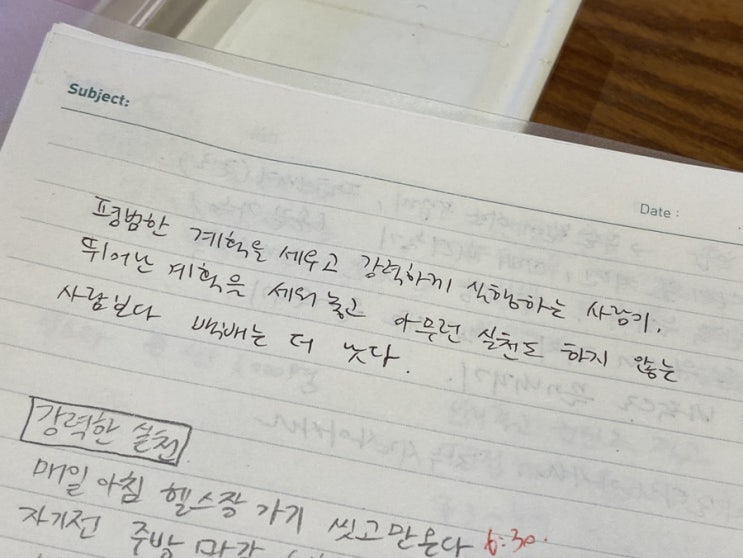 Subject:
Date :
평범한 계획을 세우고 강력하게 실행하는 사람이,
뛰어난 계획을 세워 놓고 아무런 실천도 하지 않는
사람보다 백배는 더 낫다.
강력한 실천
매일 아침 헬스장 가기 씻고만온다 6:30.
자기전 주방 마감